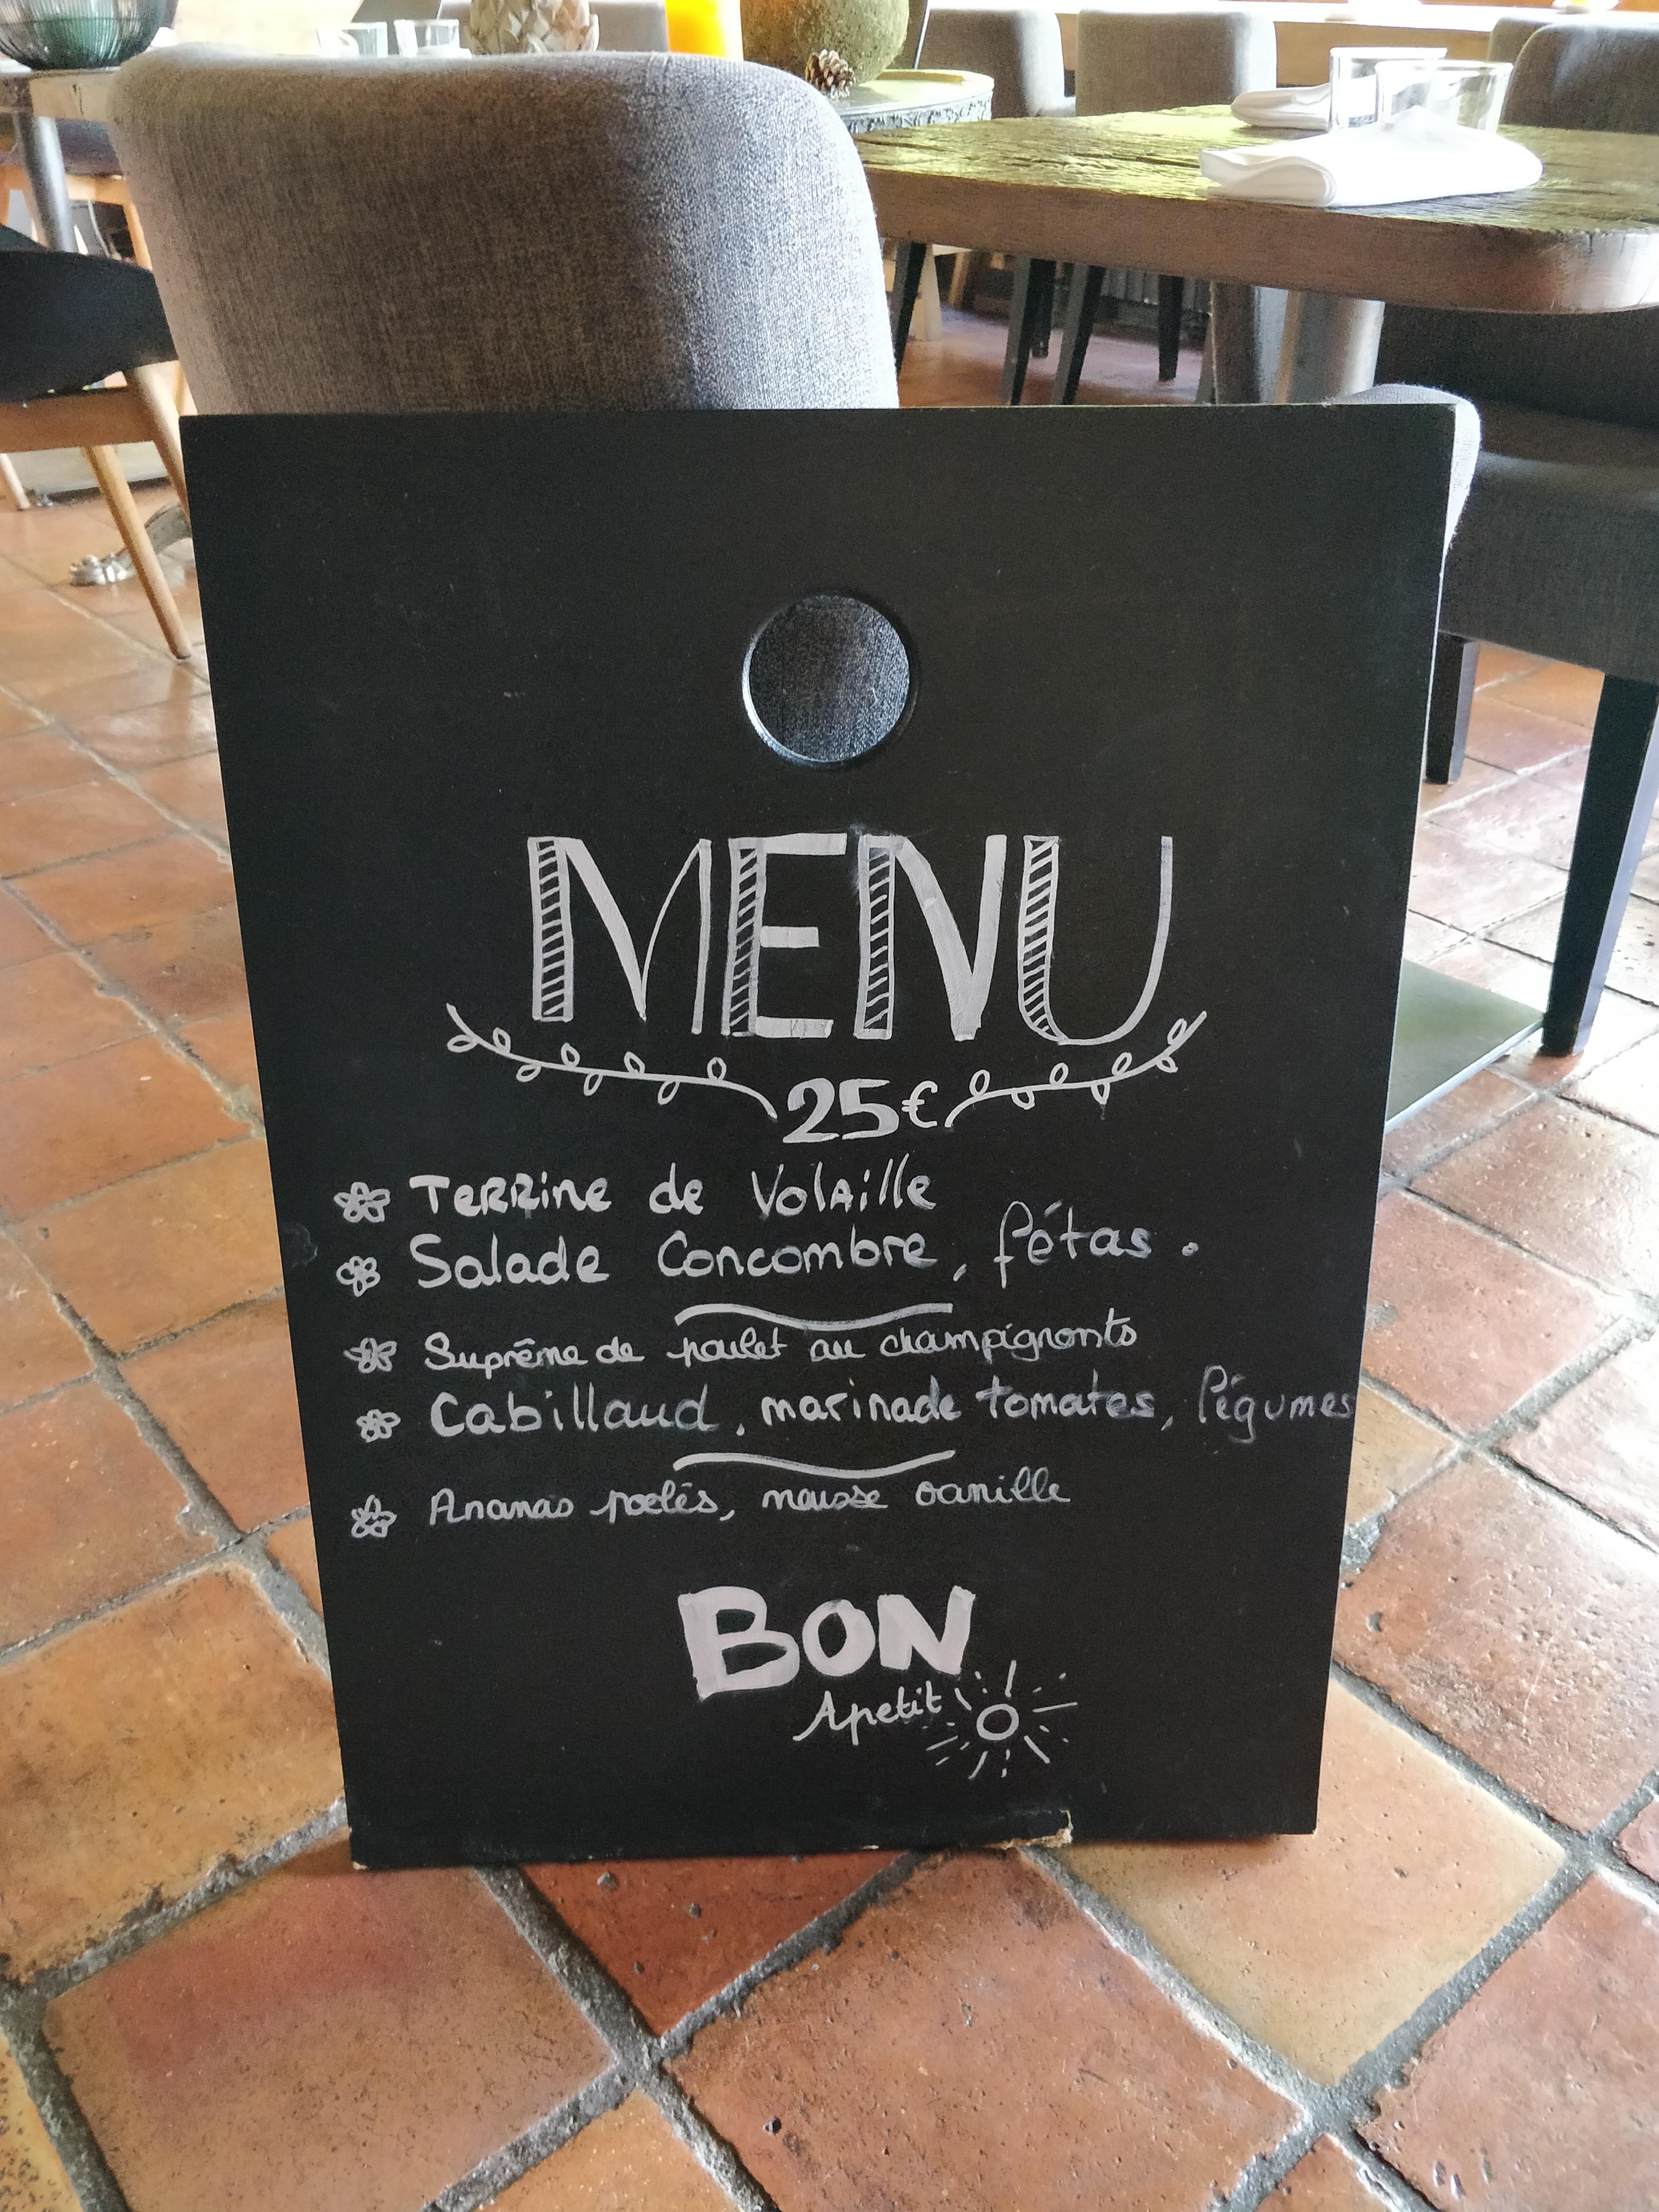 MENU
25€
Terrine de Volaille
Salade Concombre, fétas.
Suprême de poulet au champignonts
Cabillaud, marinade tomates, légumes
Ananas poelés, mousse vanille
BON
Apetit